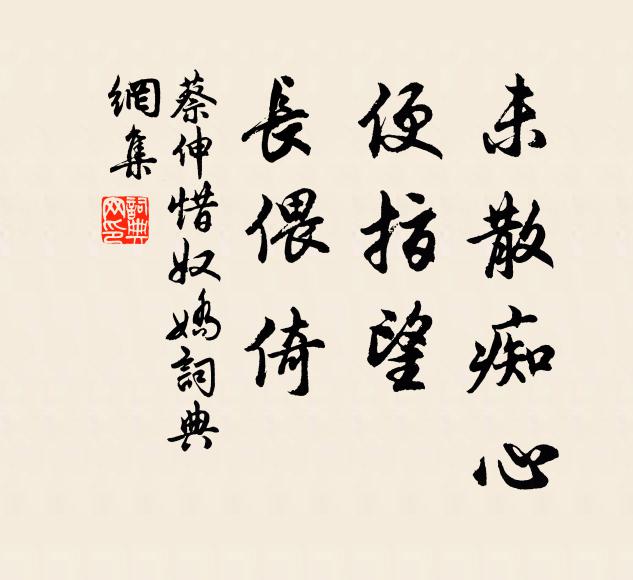 未散痴心
便指望
長偎倚
蔡伸惜奴嬌詞典
網集
詞典
网印